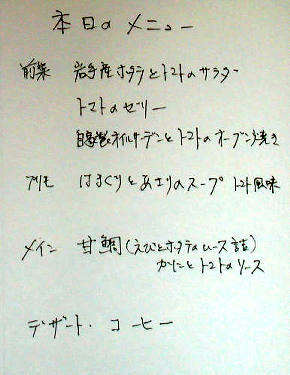 本日のメニュー
前菜 岩手産ホタテとトマトのサラダ
トマトのゼリー
自家製オイルサーデンとトマトのオーブン焼き
プリモ はまぐりとあさりのスープ トマト風味
メイン 甘鯛(えびとホタテのムース詰)
とトマトのソース
デザート・コーヒー